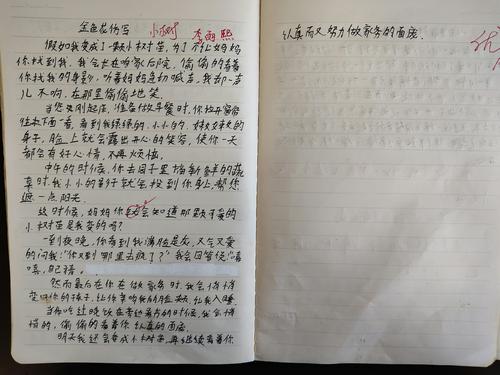 金色花仿写 小树 李雨熙
假如我变成了一颗小树苗,为了不让妈妈
你找到我,我会长在咱家后院,偷偷的看着
你找我的身影,听着妈妈急切喊声,我却一声
儿不响,在那里偷偷地笑。
当您早刚起床,准备做早餐时,你放开窗帘
往下面一看,看到我绿绿的,小小的,妹妹的
身子,脸上就会露出开心的笑容,使你一天
都会有好心情,不再烦恼。
中午的时候,你去园子里摘新鲜的蔬
菜时,我小小的影子就会投到你身上,帮你
遮一点阳光。
这时候,妈妈你就会知道那颗可爱的
小树苗是我变的吗?
一到夜晚,你看到我满脸是灰,又气又爱
的问我:“你又到哪里去疯了?”我会回答说:“嘻
嘻,自己猜。
然而最后在你在做家务时,我会悄悄
变回你的孩子,让你
当你吃过晚饭在
悄的,偷偷的看着你认真的面庞。
明天我还会变成小树苗,再继续看着你
认真而又努力做家务的面庞。
优